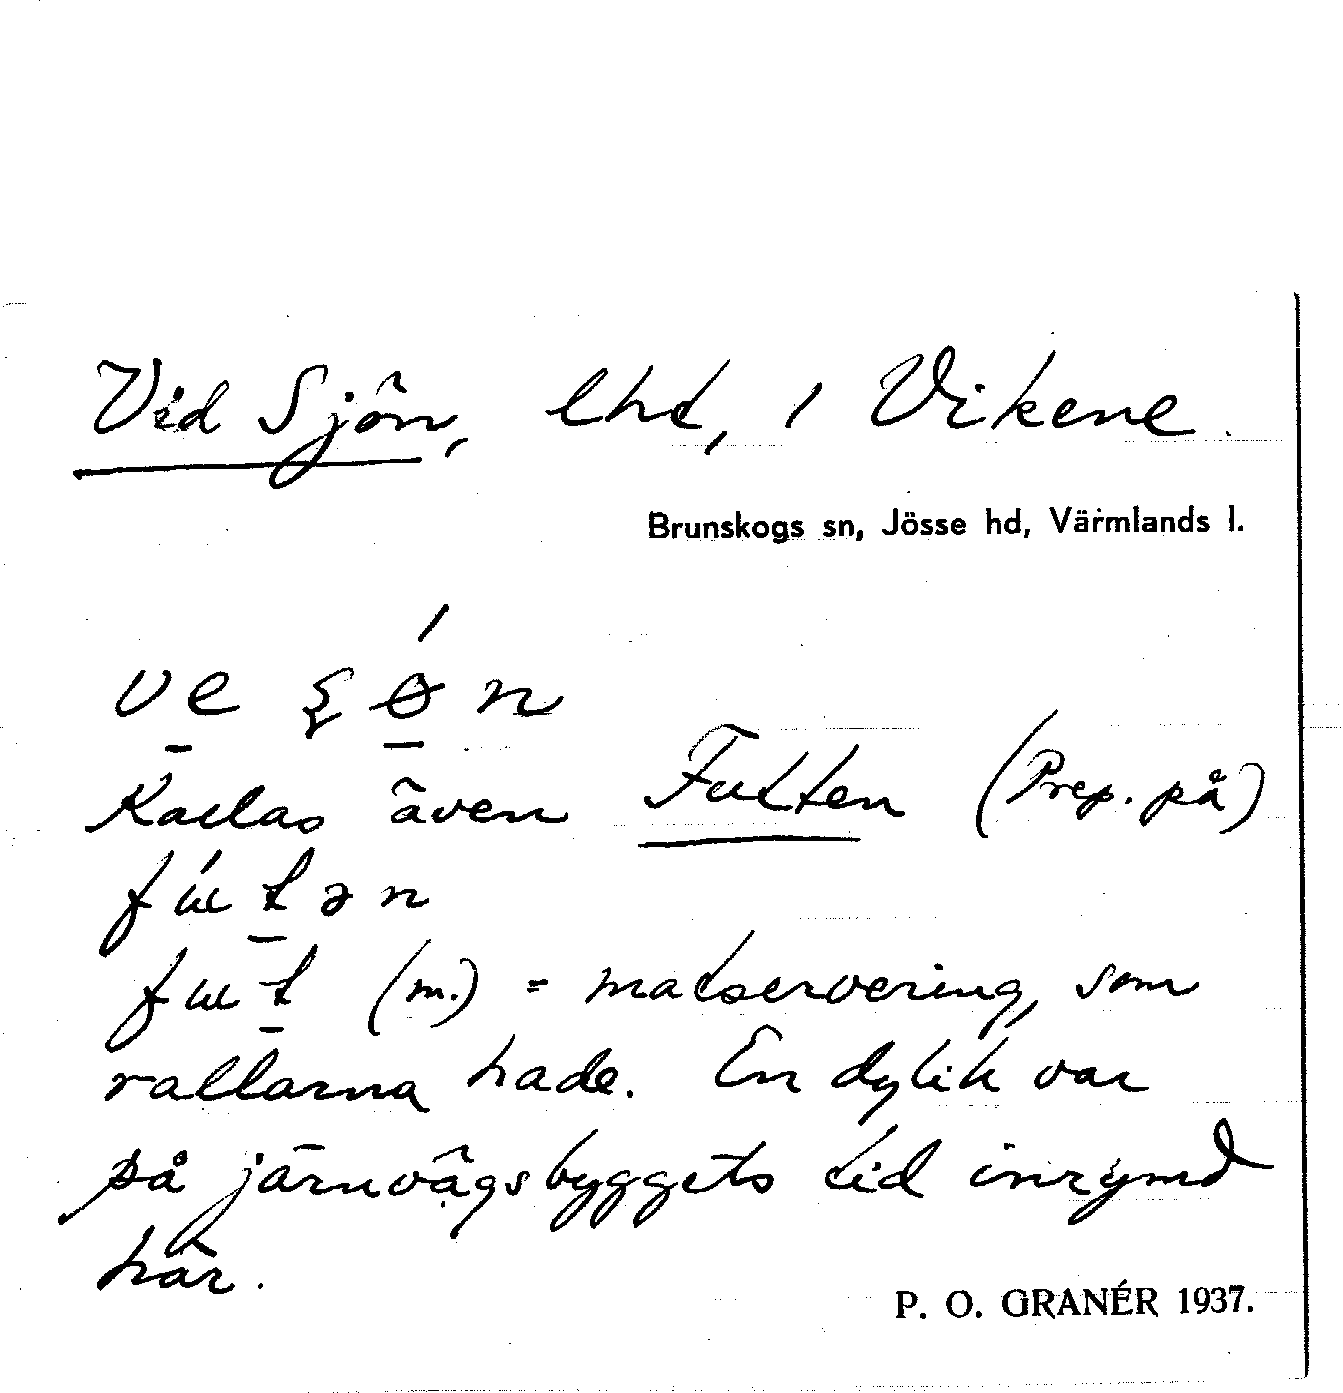 Vid Sjön, lht, i Vikene.
Brunskogs sn, Jösse hd, Värmlands l.
Kallas även Futten (Prep. på)
(m.) = matservering, som
rallarna hade. En dylik var
på järnvägsbyggets tid inrymd
här.
P. O. GRANÉR 1937.